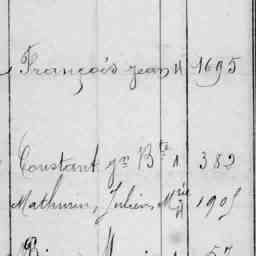 François Jean N 1695
Constant gn Bte N 382
Mathurin, Julien Mrie N 1905
57